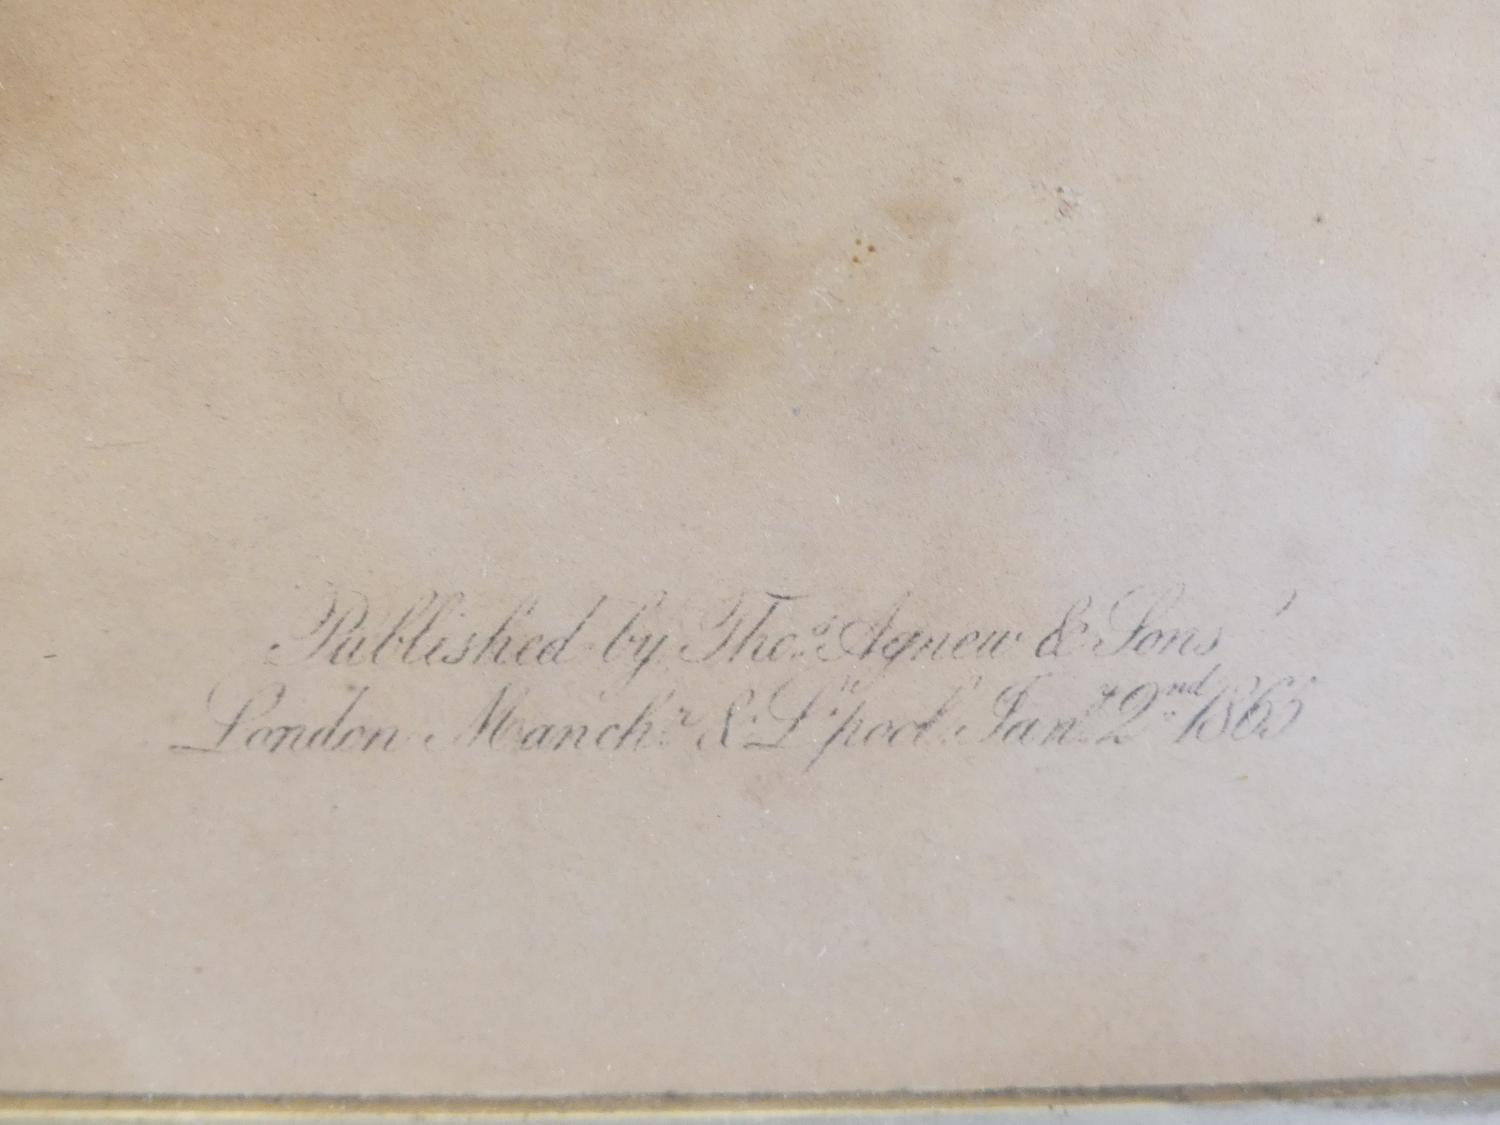 Published by Thos. Agnew & Sons
London Manchr. & L'pool Jany. 2nd 1865